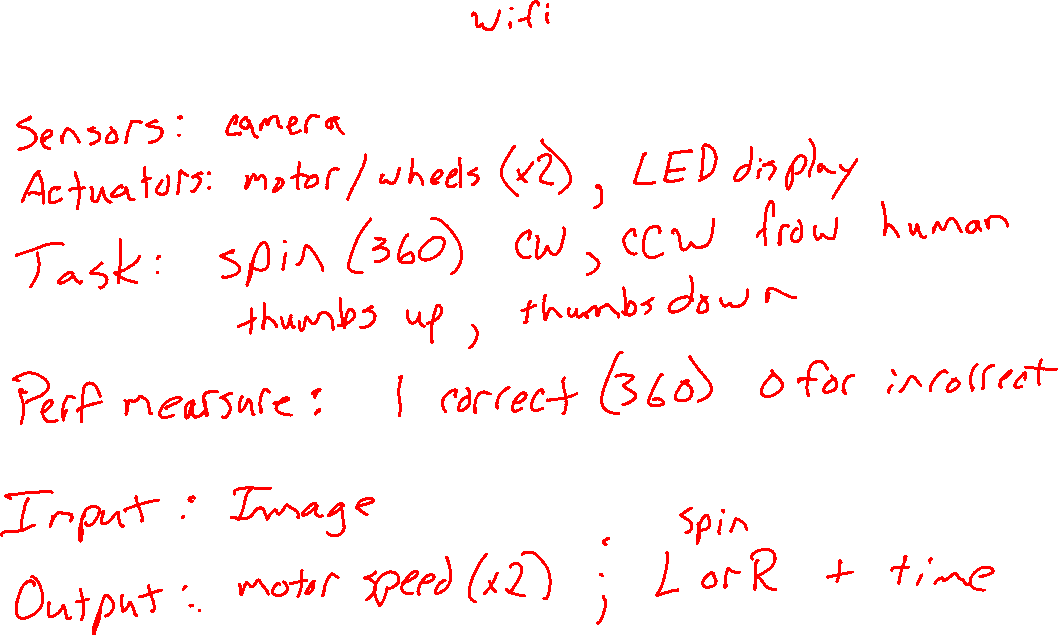 wifi
Sensors: camera
Actuators: motor/wheels (x2), LED display
Task: spin (360) CW, CCW from human
thumbs up, thumbs down
Perf mearsure: 1 correct (360) 0 for incorrect
Input: Image
spin
Output: motor speed (x2) ; L or R + time